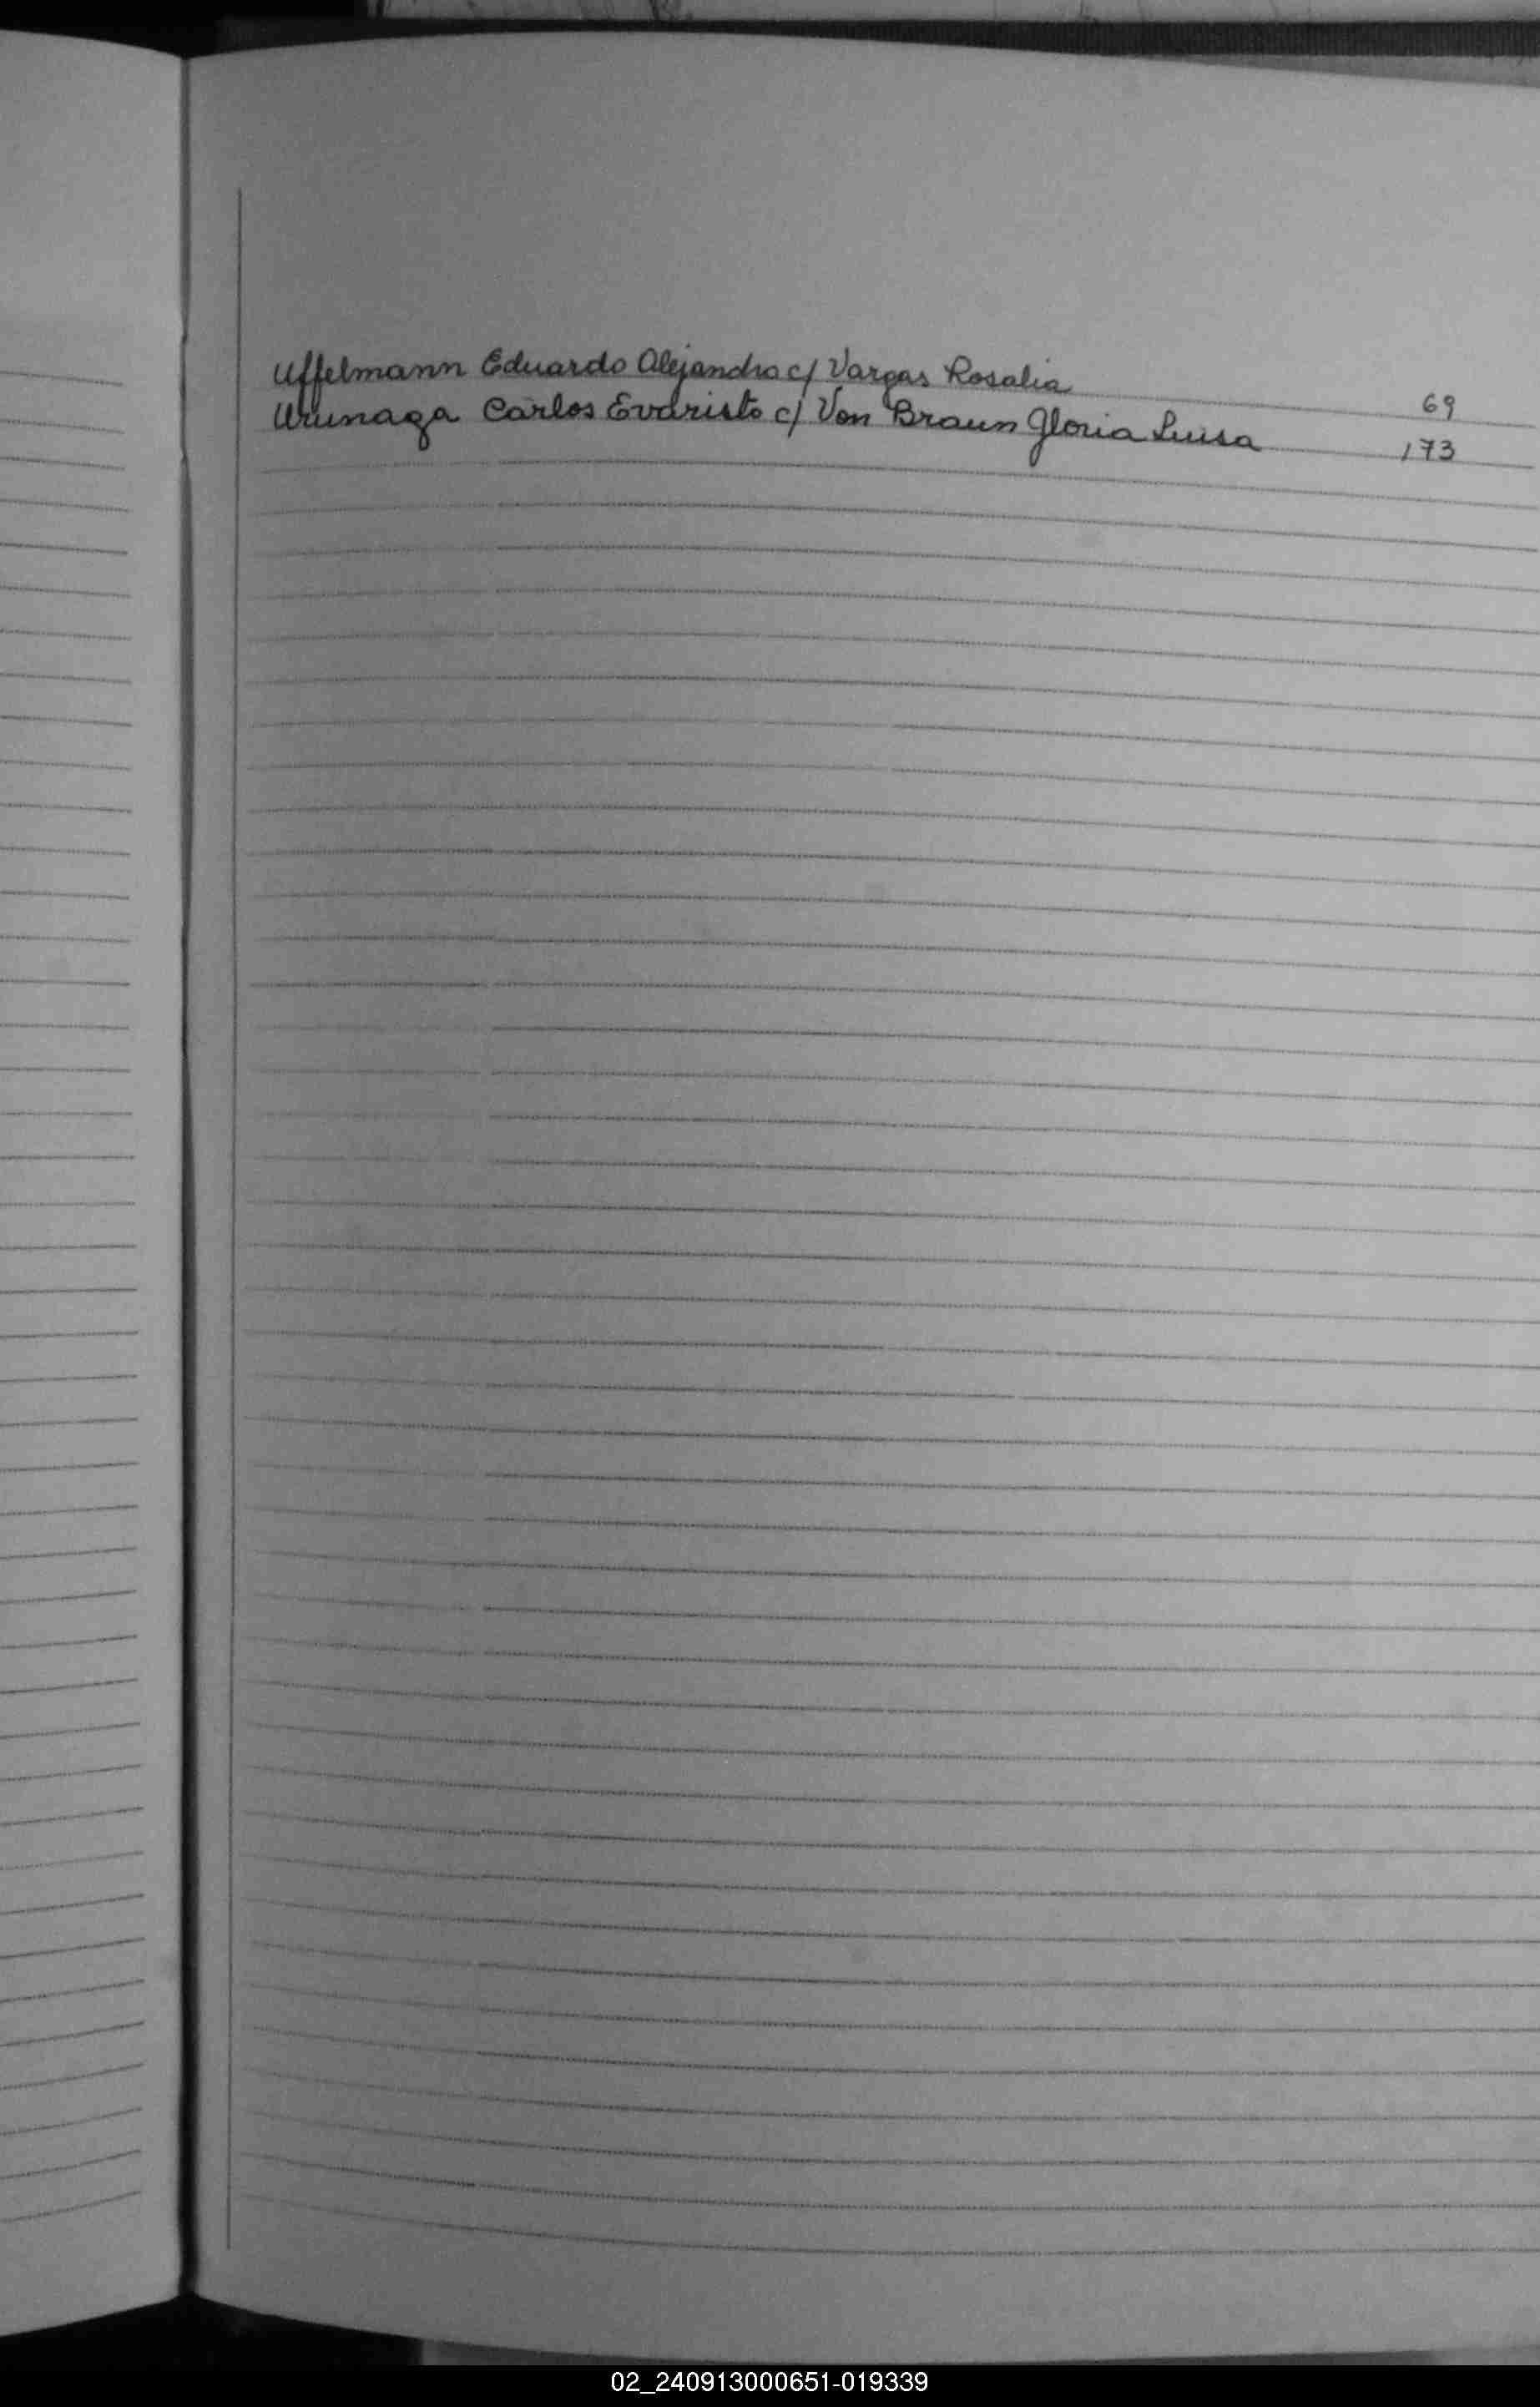 Uffelmann Eduardo Alejandro c/ Vargas Rosalia 69
Urunaga Carlos Evaristo c/ Von Braun Gloria Luisa 173
02_240913000651-019339